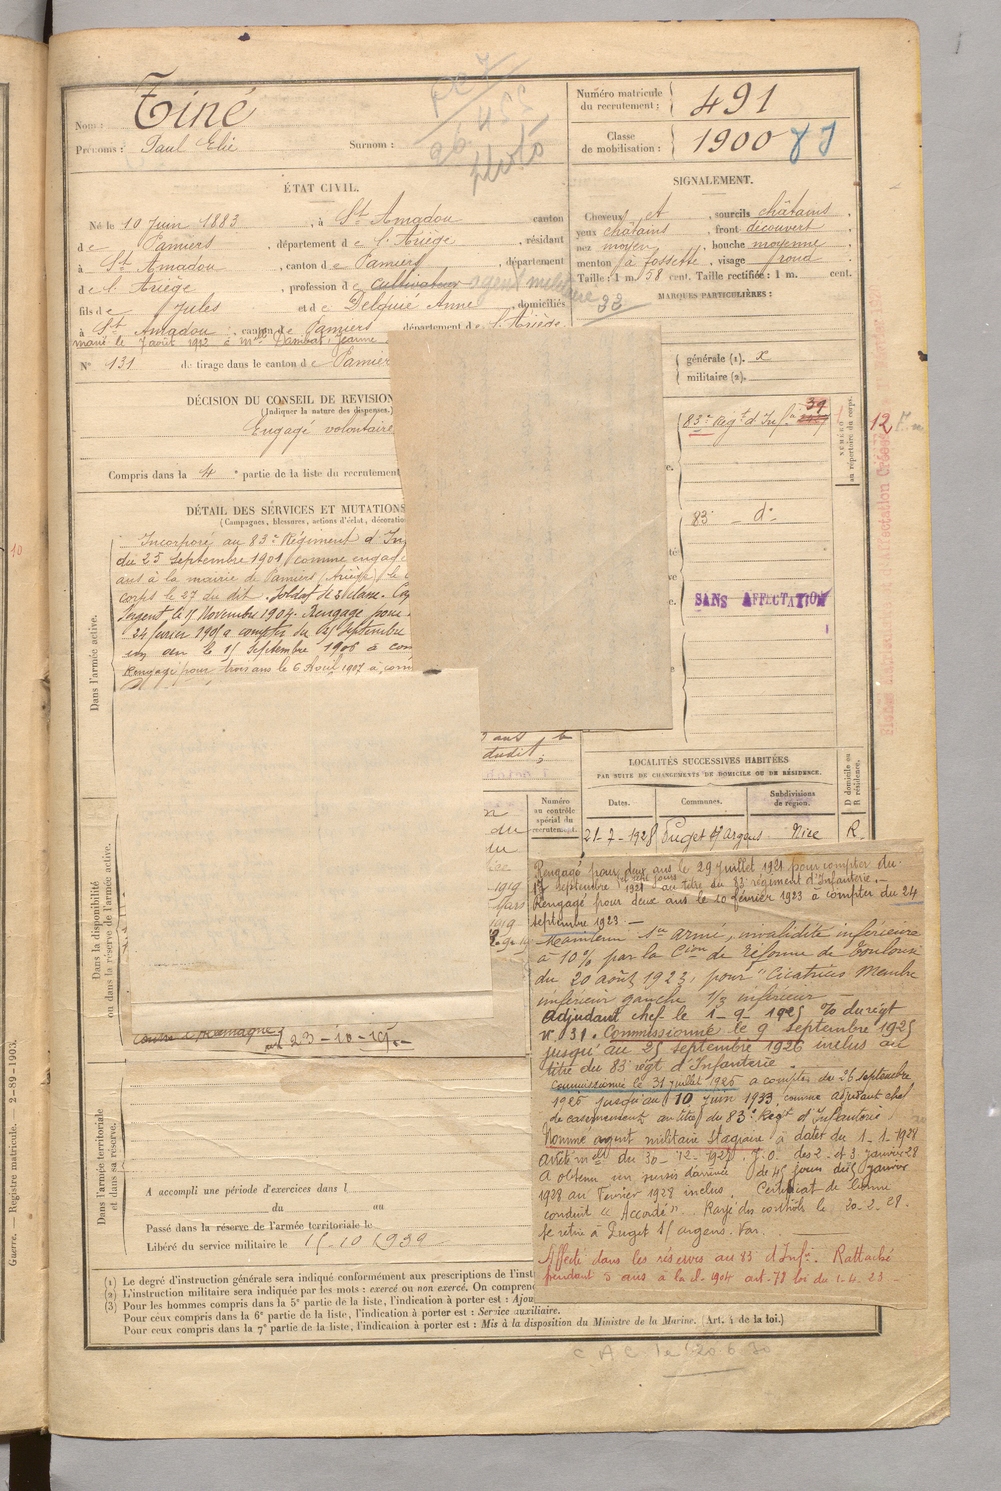 Nom : Tiné
Prénoms : Paul Elie Surnom :
Numéro matricule du recrutement : 491
Classe de mobilisation : 1900
ÉTAT CIVIL.
Né le 10 Juin 1883, à St Amadou canton
de Pamiers, département de l'Ariège, résidant
à St Amadou, canton de Pamiers, département
de l'Ariège, profession de cultivateur agent militaire
fils de Jules et de Delquié Anne, domiciliés
à St Amadou, canton de Pamiers, département de l'Ariège
marié le 7 août 1912 à Mlle Dambas, Jeanne
N° 131 de tirage dans le canton de Pamiers
SIGNALEMENT.
Cheveux et, sourcils châtains,
yeux châtains, front découvert
nez moyen, bouche moyenne
menton à fossette, visage rond
Taille : 1 m. 58 cent. Taille rectifiée : 1 m. cent.
MARQUES PARTICULIÈRES :
générale (1). x
militaire (2).
DÉCISION DU CONSEIL DE REVISION
(Indiquer la nature des dispenses.)
Engagé volontaire
Compris dans la 4e partie de la liste du recrutement
NUMÉRO au répertoire du corps.
83e Régt d'Infie 39
83 - do -
SANS AFFECTATION
DÉTAIL DES SERVICES ET MUTATIONS
(Campagnes, blessures, actions d'éclat, décorations
Dans l'armée active.
Incorporé au 83e Régiment d'In
du 25 Septembre 1901 comme engagé
ans à la mairie de Pamiers (Ariège) le
corps le 27 du dit. Soldat de 2e classe.
Sergent le 15 Novembre 1904. Rengagé pour
24 février 1905 à compter du 25 Septembre
un an le 15 Septembre 1906 à com
Rengagé pour trois ans le 6 Avril 1907 à com
ans le
dudit;
du
1919
Mars
1919
LOCALITÉS SUCCESSIVES HABITÉES
PAR SUITE DE CHANGEMENTS DE DOMICILE OU DE RÉSIDENCE.
Numéro au contrôle spécial du recrutement.
Dates. Communes. Subdivisions de région. D domicile ou R résidence.
21-7-1928 Puget s/ Argens Nice R
Rengagé pour deux ans le 29 juillet 1921 pour compter du
septembre 1921 au titre du 83e régiment d'Infanterie.-
Rengagé pour deux ans le 10 février 1923 à compter du 24
septembre 1923 -
Maintenu Sce armé, invalidité inférieure
à 10% par la Cion de Réforme de Toulouse
du 20 août 1923, pour "Cicatrices Membre
inférieur gauche 1/3 inférieur -
Adjudant chef le 1-9-1925 % du régt
n° 39. Commissionné le 9 septembre 1925
jusqu'au 25 septembre 1926 inclus au
titre du 83e régt d'Infanterie.
Commissionné le 31 juillet 1926 à compter du 26 septembre
1926 jusqu'au 10 juin 1933 comme adjudant chef
de casernement au titre du 83e Régt d'Infanterie
Nommé agent militaire stagiaire à dater du 1-1-1928
Arrêté mel du 30-12-1927. J.O. des 2 et 3 janvier 28
A obtenu un sursis d'arrivée de 45 jours du 5 janvier
1928 au février 1928 inclus. Certificat de bonne
conduite "Accordé". Rayé des contrôles le 20-2-28.
Se retire à Puget s/ argens. Var.
Affecté dans les réserves au 83 d'Infie. Rattaché
pendant 5 ans à la cl. 1904 art. 72 loi du 1-4-23 -
Dans la disponibilité ou dans la réserve de l'armée active.
contre l'Allemagne
23-10-19
Dans l'armée territoriale et dans sa réserve.
A accompli une période d'exercices dans l
du au
Passé dans la réserve de l'armée territoriale le
Libéré du service militaire le 15-10 1939
(1) Le degré d'instruction générale sera indiqué conformément aux prescriptions de l'inst
(2) L'instruction militaire sera indiquée par les mots : exercé ou non exercé. On comprend
(3) Pour les hommes compris dans la 5e partie de la liste, l'indication à porter est : Ajou
Pour ceux compris dans la 6e partie de la liste, l'indication à porter est : Service auxiliaire.
Pour ceux compris dans la 7e partie de la liste, l'indication à porter est : Mis à la disposition du Ministre de la Marine. (Art. 4 de la loi.)
C A C le 20 6 30
Guerre. — Registre matricule. 2-89-1903.